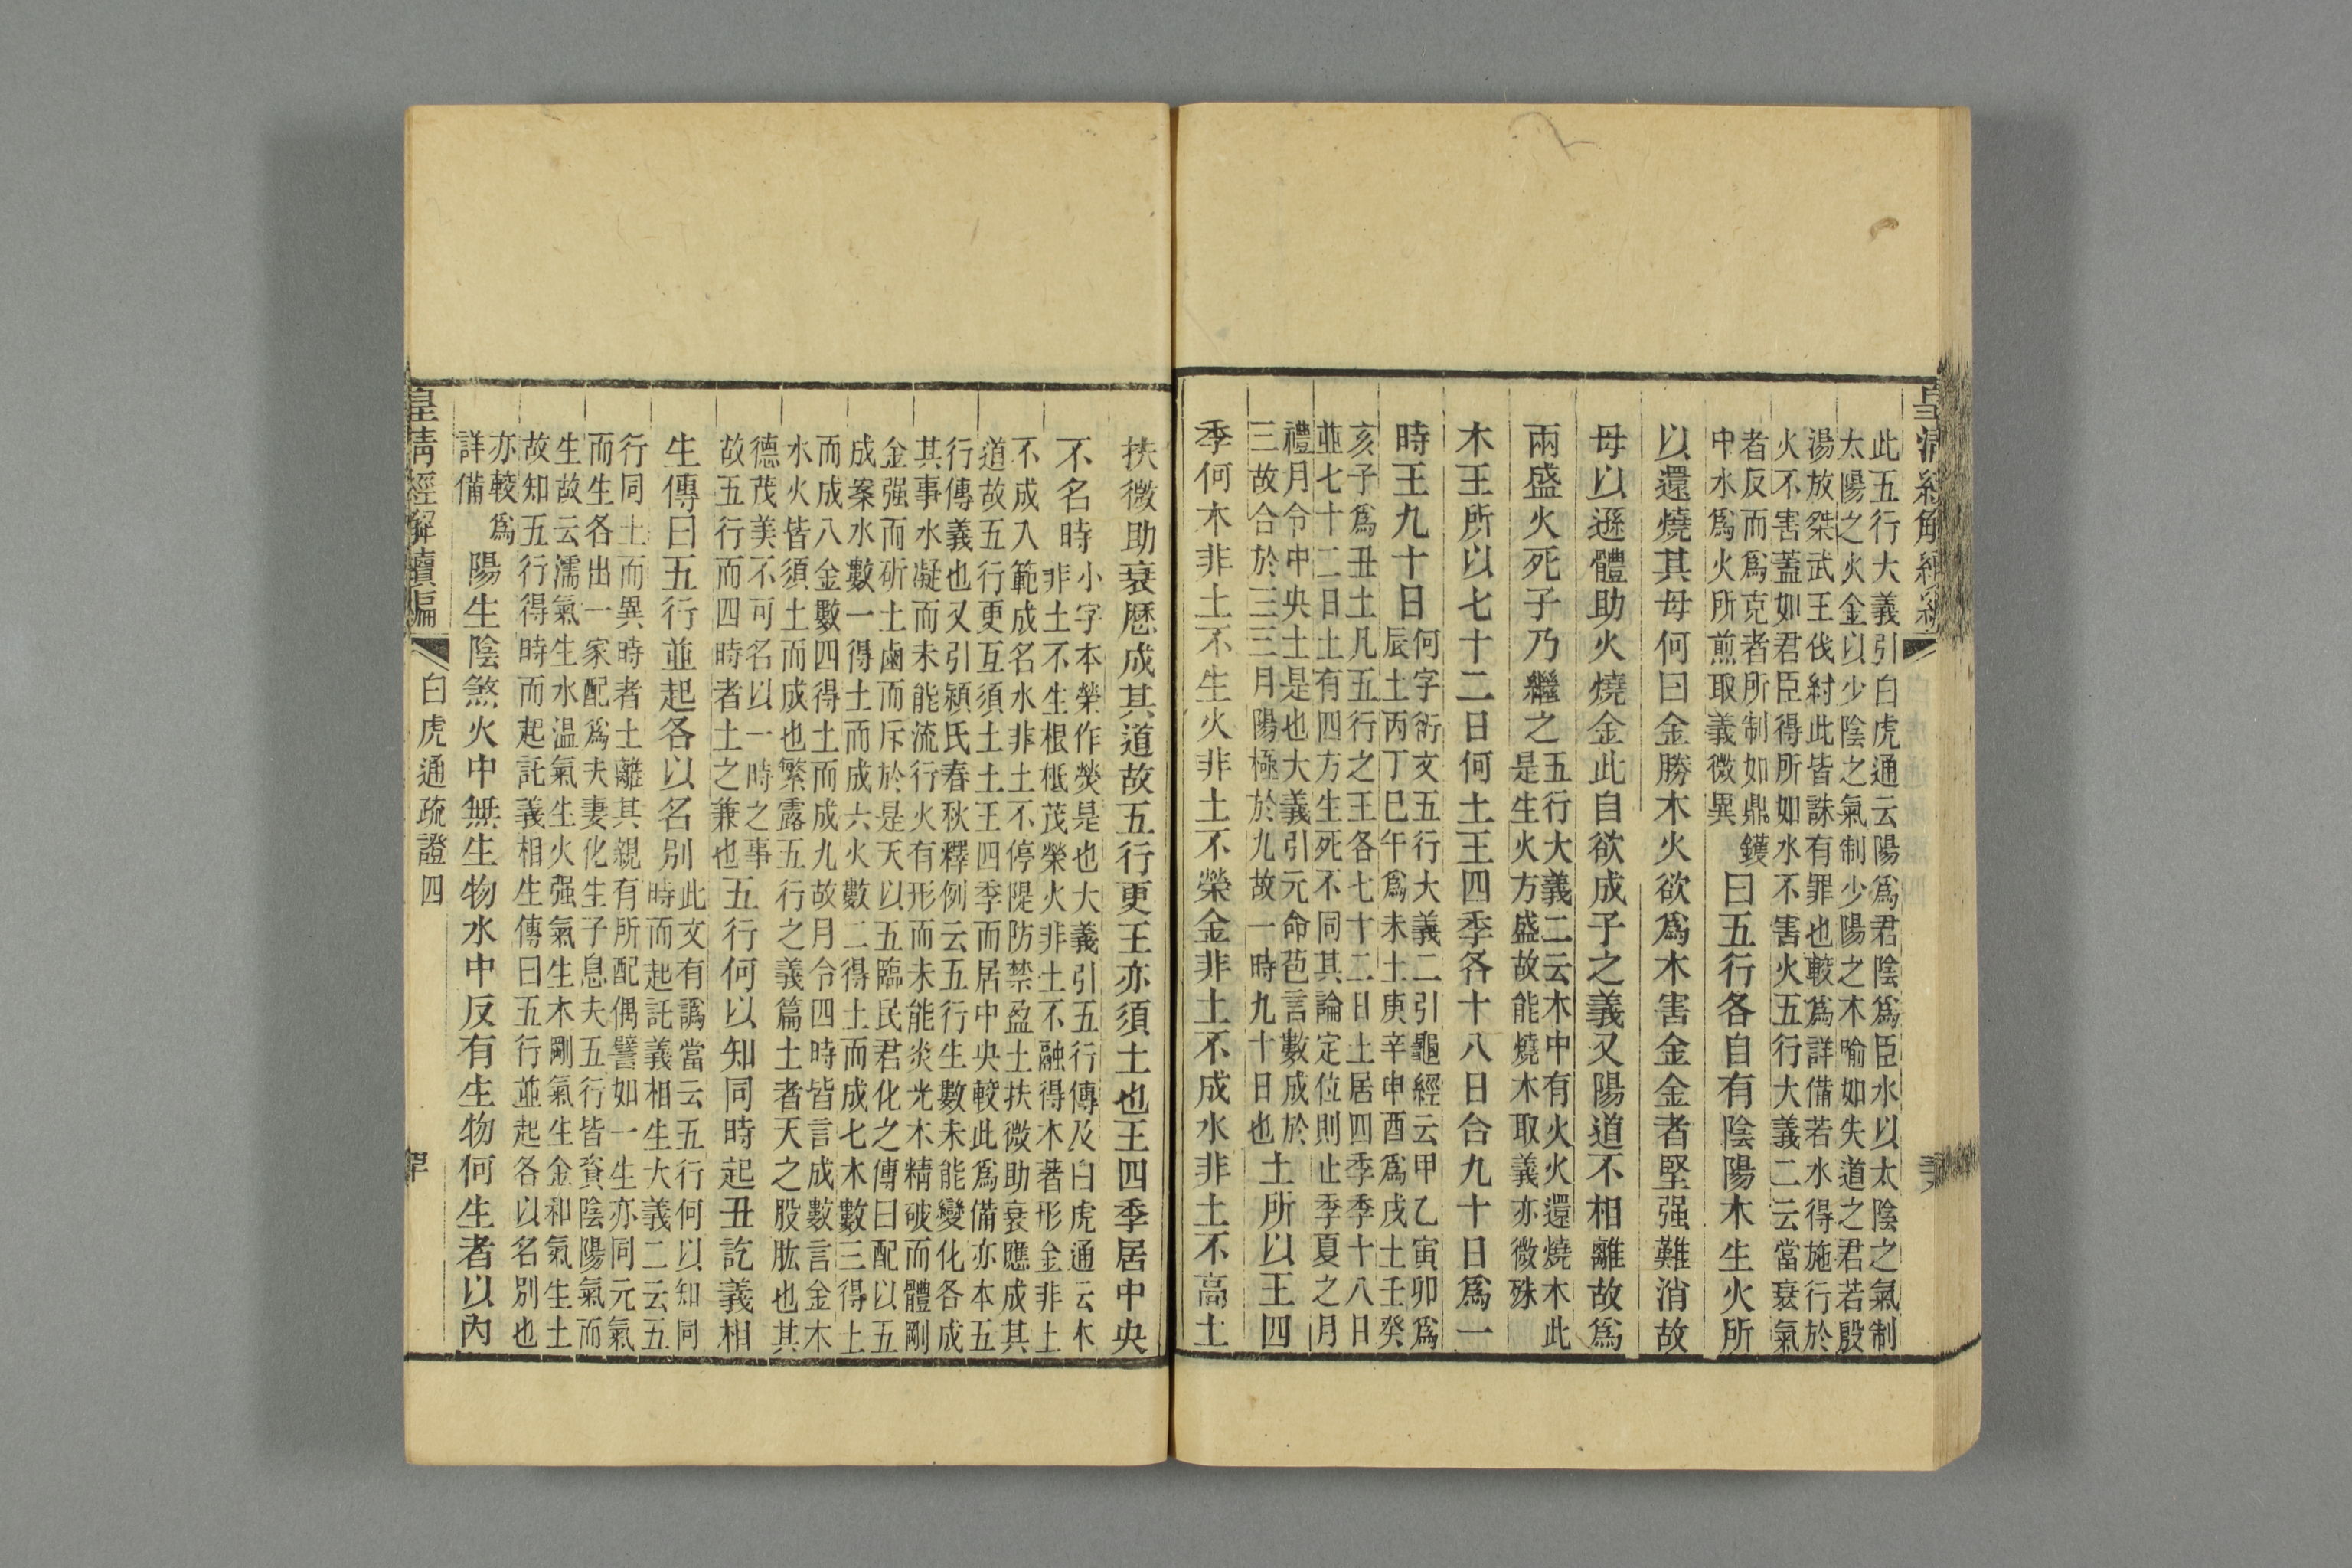 此五行大義引白虎通云陽爲君陰爲臣水以太陰之氣制
太陽之火金以少陰之氣制少陽之木喻如失道之君若殷
湯放桀武王伐紂此皆誅有罪也較爲詳備若水得施行於
火不害蓋如君臣得所如水不害火五行大義二云當衰氣
者反而爲克者所制如鼎鑊
中水爲火所煎取義微異
曰五行各自有陰陽木生火所
以還燒其母何曰金勝木火欲爲木害金金者堅强難消故
母以遜體助火燒金此自欲成子之義又陽道不相離故爲
兩盛火死子乃繼之
五行大義二云木中有火火還燒木此
是生火方盛故能燒木取義亦微殊
木王所以七十二日何土王四季各十八日合九十日爲一
時王九十日
何字衍文五行大義二引龜經云甲乙寅卯爲
辰土丙丁巳午爲未土庚辛申酉爲戌土壬癸
亥子爲丑土凡五行之王各七十二日土居四季季十八日
並七十二日土有四方生死不同其論定位則止季夏之月
禮月令中央土是也大義引元命苞言數成於
三故合於三三月陽極於九故一時九十日也
土所以王四
季何木非土不生火非土不榮金非土不成水非土不高土
扶微助衰歷成其道故五行更王亦須土也王四季居中央
不名時
小字本榮作熒是也大義引五行傳及白虎通云木
非土不生根柢茂榮火非土不融得木著形金非土
不成入範成名水非土不停隄防禁盈土扶微助衰應成其
道故五行更互須土土王四季而居中央較此爲備亦本五
行傳義也又引潁氏春秋釋例云五行生數未能變化各成
其事水凝而未能流行火有形而未能炎光木精破而體剛
金强而斫土鹵而斥於是天以五臨民君化之傳曰配以五
成案水數一得土而成六火數二得土而成七木數三得土
而成八金數四得土而成九故月令四時皆言成數言金木
水火皆須土而成也繁露五行之義篇土者天之股肱也其
德茂美不可名以一時之事
故五行而四時者土之兼也
五行何以知同時起丑訖義相
生傳曰五行並起各以名別
此文有譌當云五行何以知同
時而起託義相生大義二云五
行同土而異時者土離其親有所配偶譬如一生亦同元氣
而生各出一家配爲夫妻化生子息夫五行皆資陰陽氣而
生故云濡氣生水温氣生火强氣生木剛氣生金和氣生土
故知五行得時而起託義相生傳曰五行並起各以名別也
亦較爲
詳備
陽生陰煞火中無生物水中反有生物何生者以內
皇清經解續編
白虎通疏證四